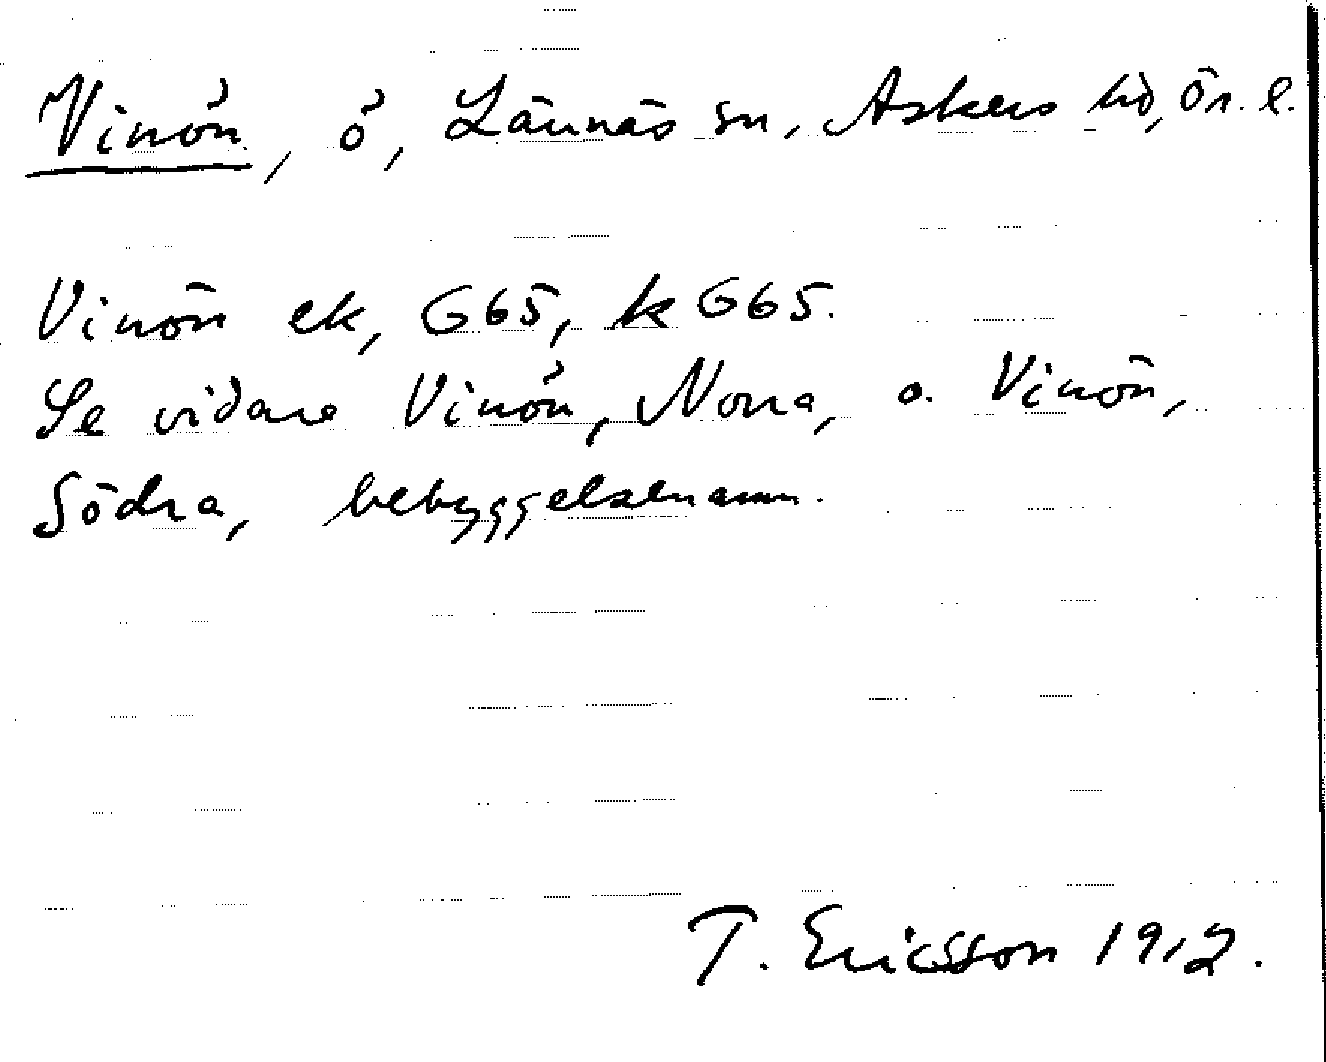 Vinön, ö, Lännäs sn, Askers hd, Ör. l.
Vinön ek, G65, k G65.
Se vidare Vinön, Norra, o. Vinön,
Södra, bebyggelsenamn.
T. Ericsson 1912.